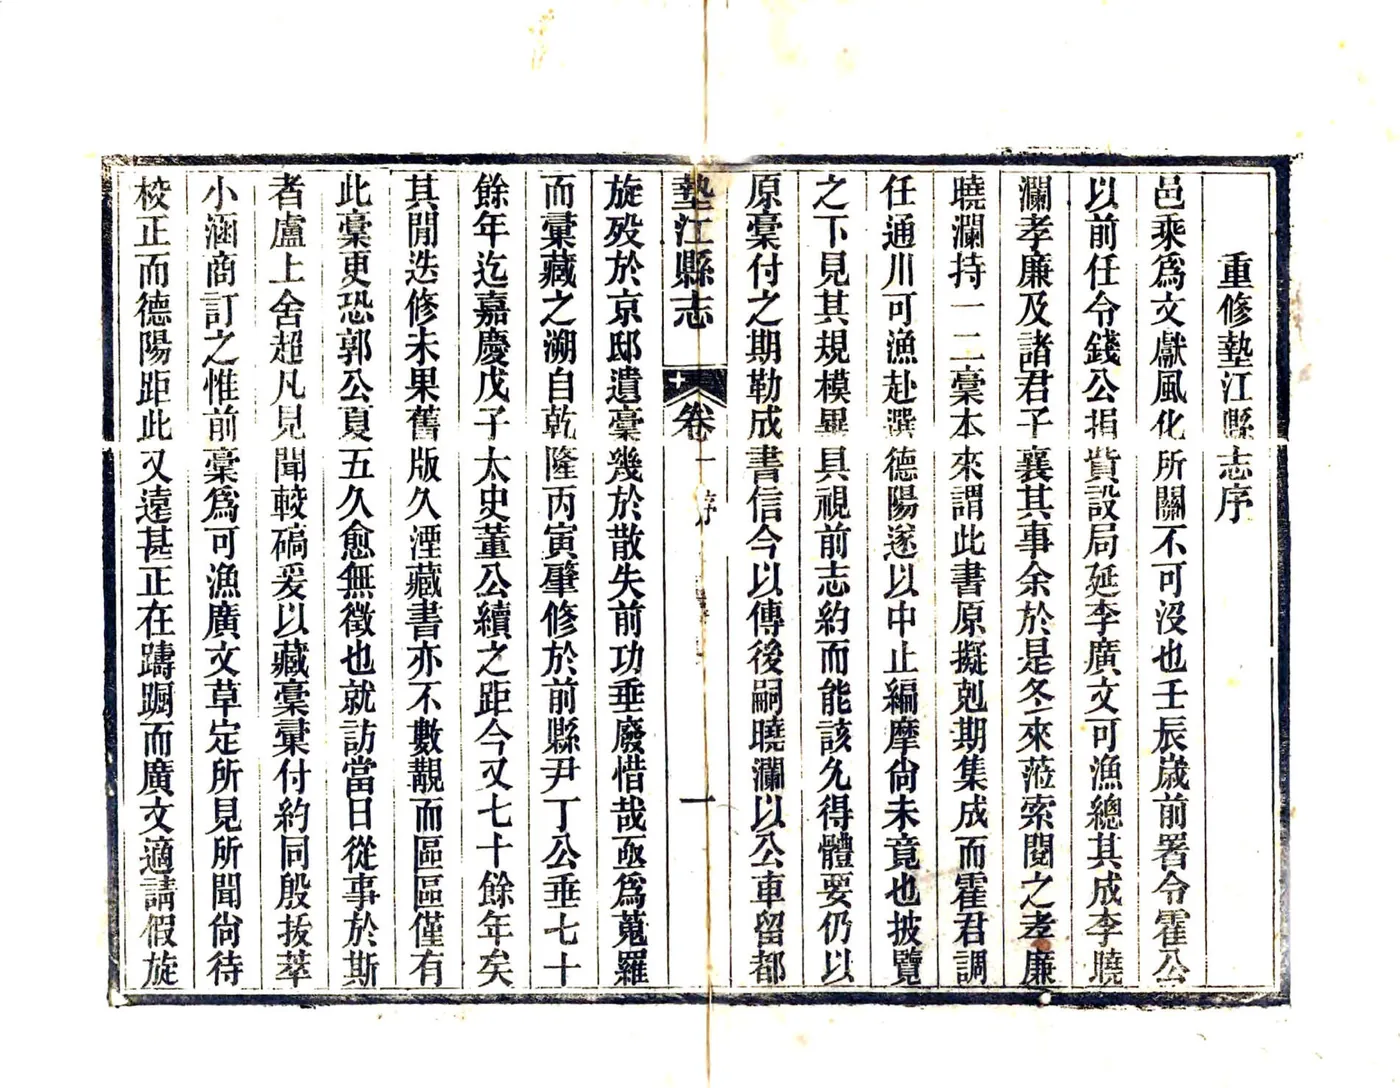 重修墊江縣志序
邑乘爲文獻風化所關不可沒也壬辰歲前署令霍公
以前任令錢公捐貲設局延李廣文可漁總其成李曉
瀾孝廉及諸君子襄其事余於是冬來蒞索閱之孝廉
曉瀾持一二稾本來謂此書原擬剋期集成而霍君調
任通川可漁赴選德陽遂以中止編摩尙未竟也披覽
之下見其規模畢具視前志約而能該允得體要仍以
原稾付之期勒成書信今以傳後嗣曉瀾以公車留都
墊江縣志
卷一 序
一
旋歿於京邸遺稾幾於散失前功垂廢惜哉亟爲蒐羅
而彙藏之溯自乾隆丙寅肇修於前縣尹丁公垂七十
餘年迄嘉慶戊子太史董公續之距今又七十餘年矣
其閒迭修未果舊版久湮藏書亦不數覯而區區僅有
此稾更恐郭公夏五久愈無徵也就訪當日從事於斯
者盧上舍超凡見聞較碻爰以藏稾彙付約同殷拔萃
小涵商訂之惟前稾爲可漁廣文草定所見所聞尙待
校正而德陽距此又遠甚正在躊躕而廣文適請假旋